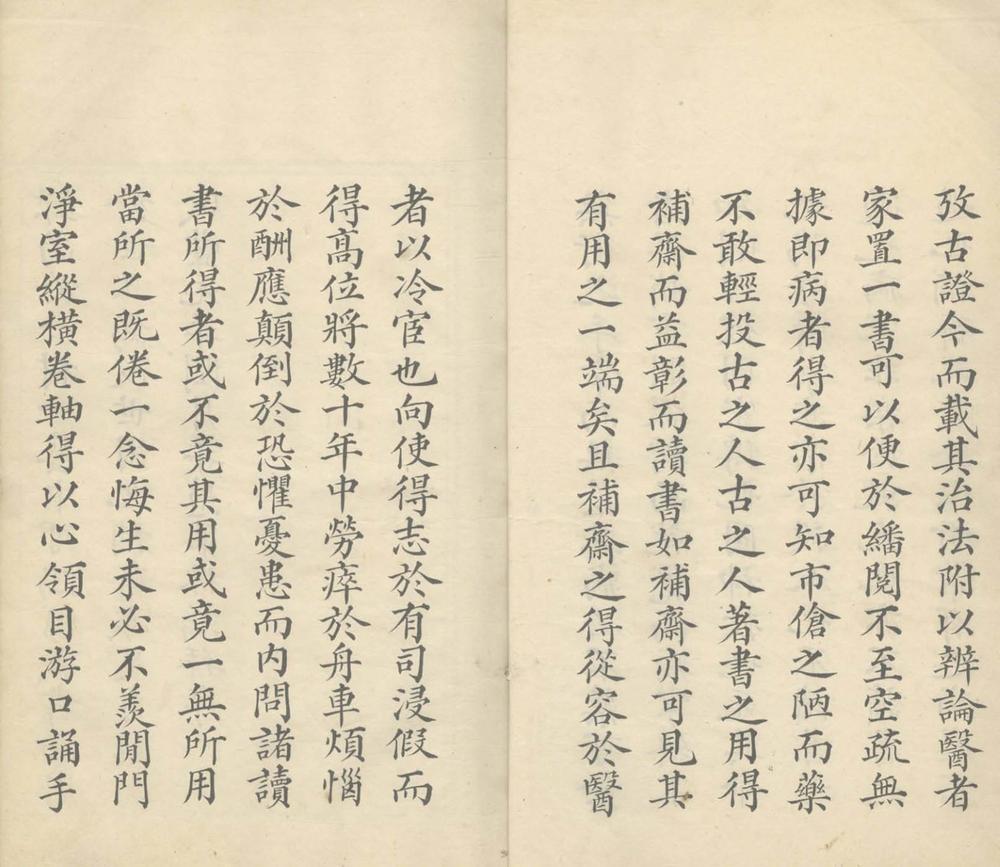 攷古證今而載其治法附以辨論醫者
家置一書可以便於繙閱不至空疏無
據即病者得之亦可知市傖之陋而藥
不敢輕投古之人古之人著書之用得
補齋而益彰而讀書如補齋亦可見其
有用之一端矣且補齋之得從容於醫
者以冷宦也向使得志於有司浸假而
得高位將數十年中勞瘁於舟車煩惱
於酬應顛倒於恐懼憂患而内問諸讀
書所得者或不竟其用或竟一無所用
當所之既倦一念悔生未必不羨閒門
淨室縱橫卷軸得以心領目游口誦手